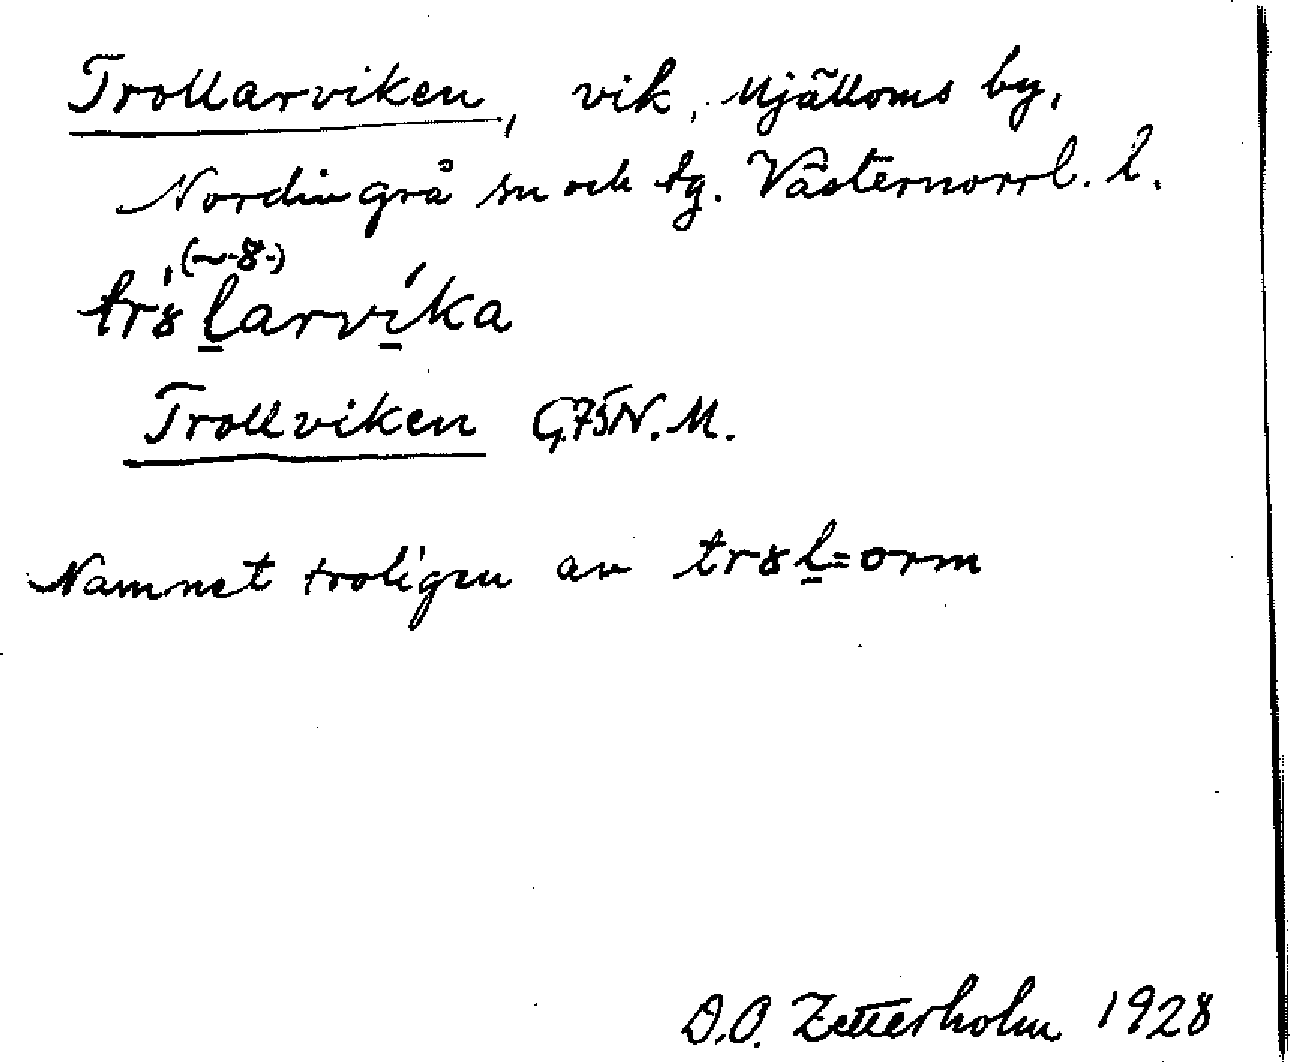 Trollarviken, vik, Mjälloms by,
Nordingrå sn och tg. Västernorrl. l.
(~-8-)
tr8́l̲arví̲ka
Trollviken G,75N.M.
Namnet troligen av tr8l̲=orm
D.O. Zetterholm 1928